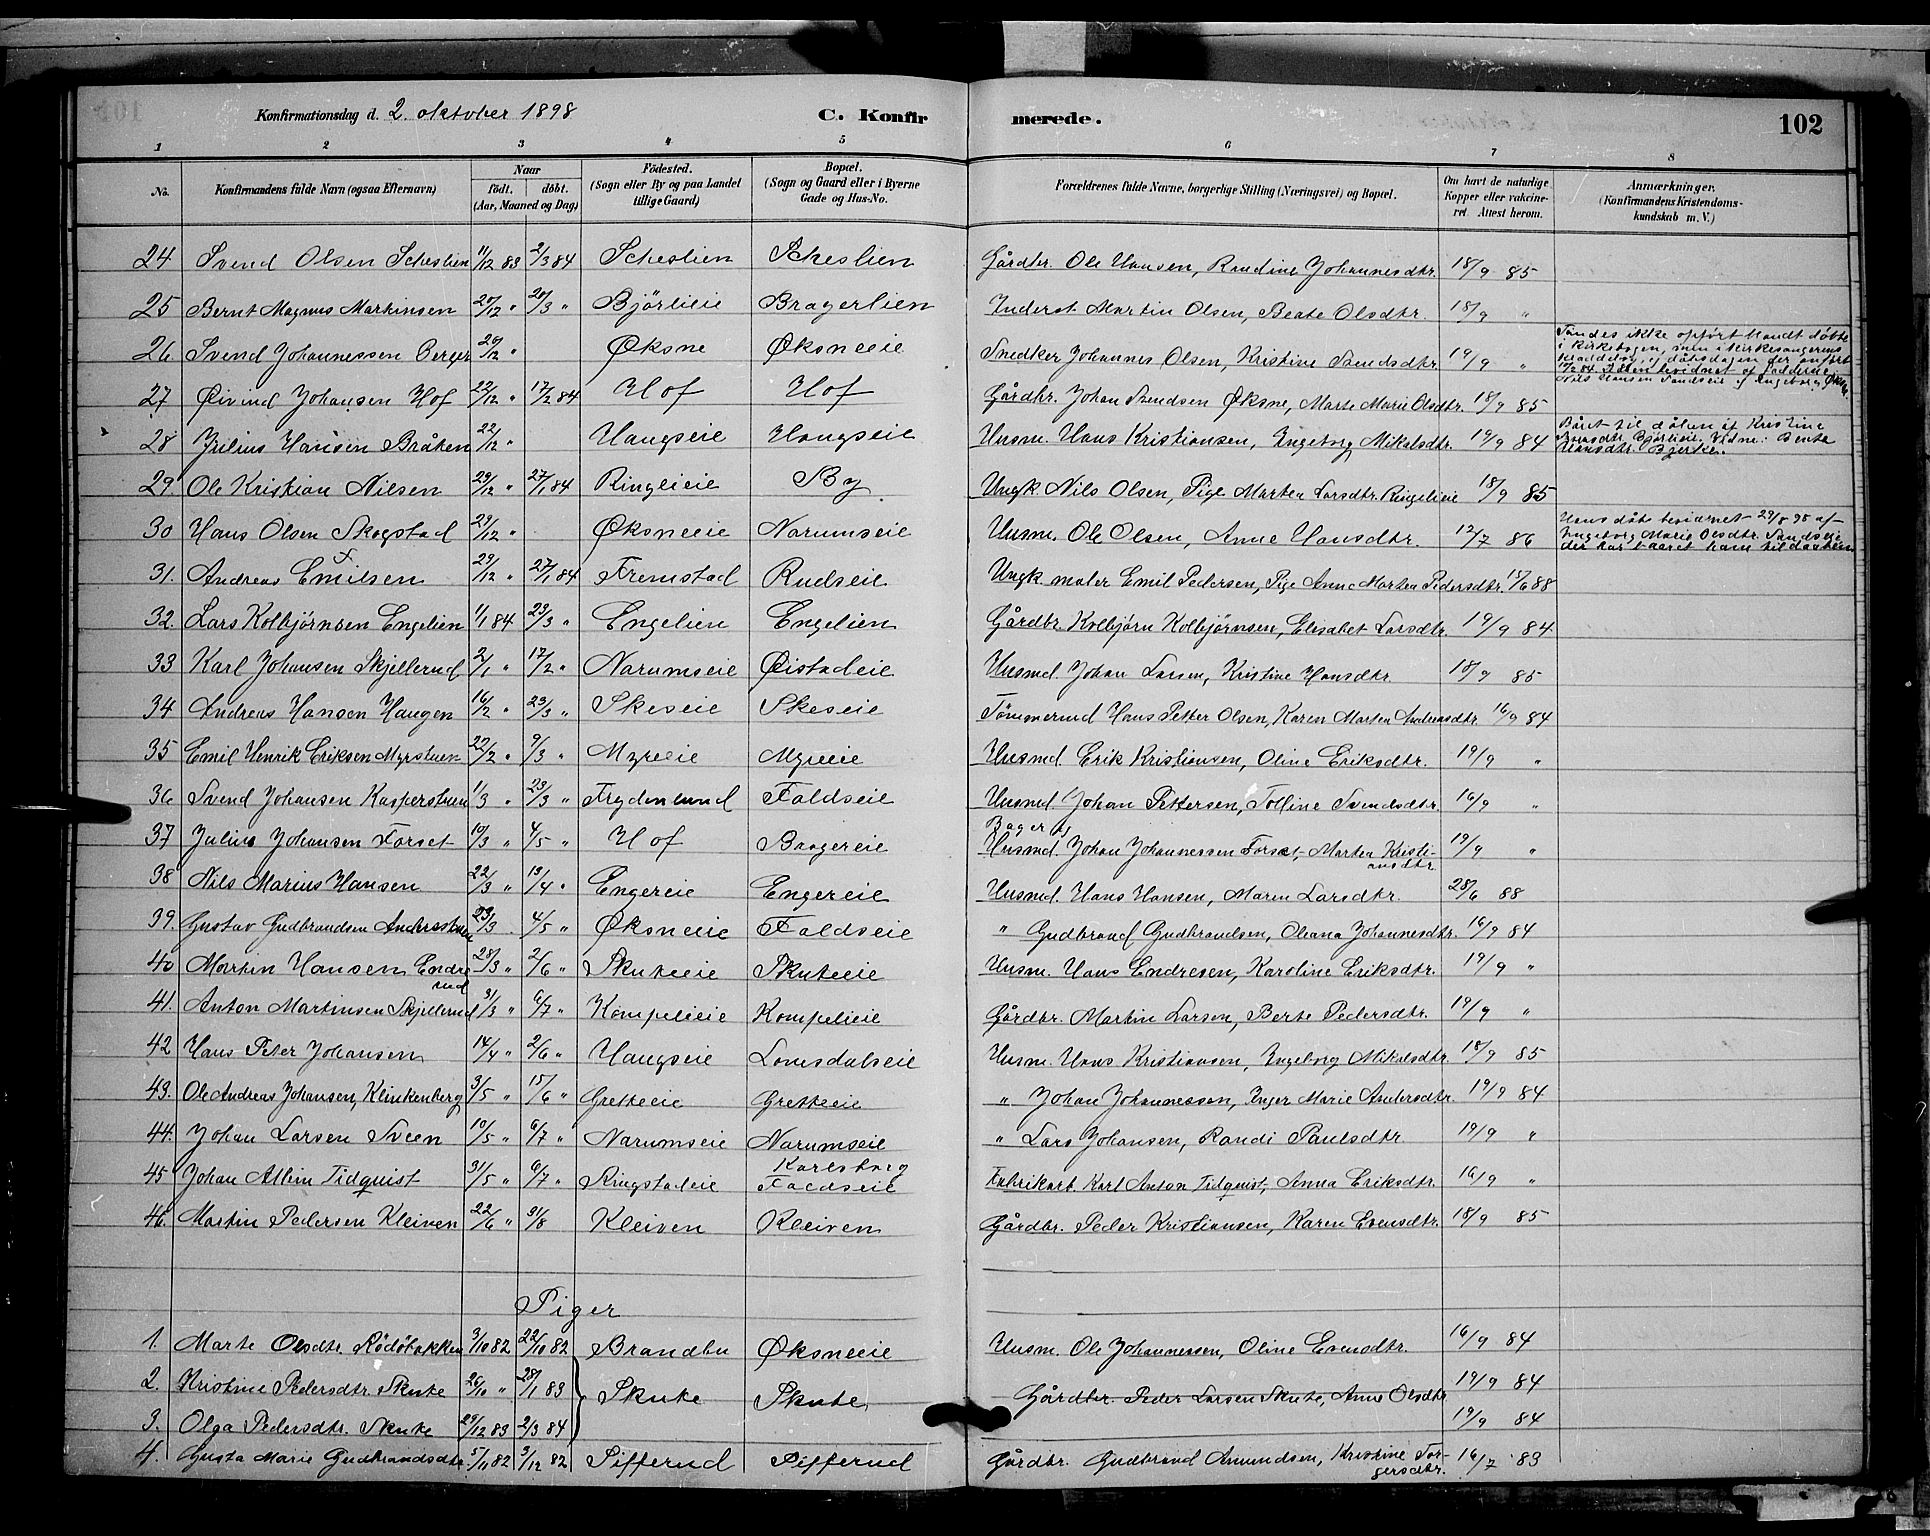 Konfirmationsdag d. 2. oktober 1898 C. Konfirmerede. 102
1 2 3 4 5 6 7 8
No. Konfirmandens fulde Navn (ogsaa Efternavn) Naar født. døbt. (Aar, Maaned og Dag) Fødested. (Sogn eller By og paa Landet tillige Gaard) Bopæl. (Sogn og Gaard eller i Byerne Gade og Hus-No. Forældrenes fulde Navne, borgerlige Stilling (Næringsvei) og Bopæl. Om havt de naturlige Kopper eller vakcineret. Attest herom. Anmærkninger. (Konfirmandens Kristendomskundskab m. V.)
24 Svend Olsen Scheslien 11/12 83 2/3 84 Scheslien Scheslien Gårdbr. Ole Hansen, Randine Johannesdtr. 18/9 85
25 Bernt Magnus Martinsen 20/12 " 20/3 " Bjørlieie Bragerlien Inderst Martin Olsen, Beate Olsdtr. 18/9 "
26 Svend Johannessen Berger 20/12 " Øksne Øksneeie Snedker Johannes Olsen, Kristine Svendsdtr. 19/9 "
27 Øivind Johansen Hof 22/12 " 17/2 84 Hof Hof Gårdbr. Johan Svendsen Øksne, Marte Marie Olsdtr. 18/9 85
28 Julius Hansen Bråten 22/12 " Haugseie Haugseie Husm. Hans Kristiansen, Ingeborg Mikalsdtr. 19/9 84 Båret til dåben af Kristine Bjørlieie. Vidne: Bente Hansdtr. Bjerke.
29. Ole Kristian Nilsen 23/12 " 27/1 84 Ringelieie By Ungk. Nils Olsen, Pige Marten Larsdtr. Ringelieie 18/9 85
30 Hans Olsen Skogstad 23/12 " Øksneeie Narumseie Husm. Ole Olsen, Anne Hansdtr. 12/7 86 Hans dåb bevidnet 29/8 98 af Ingeborg Marie Olsdtr. der har baaret ham til daaben
31. Andreas Emilsen 29/12 " 27/1 84 Fremstad Rudseie Ungk. maler Emil Pedersen, Pige Anne Marten Pedersdtr. 15/6 88
32. Lars Kolbjørnsen Engelien 1/1 84 23/3 " Engelien Engelien Gårdbr. Kolbjørn Kolbjørnsen, Elisabet Larsdtr. 19/9 84
33 Karl Johansen Skjellerud 2/1 " 17/2 " Narumseie Øistadeie Husmd. Johan Larsen, Kristine Hansdtr. 18/9 85
34 Andreas Hansen Haugen 16/2 " 23/3 " Skeseie Skeseie Tømmermd Hans Petter Olsen, Karen Marten Andreasdtr. 16/9 84
35 Emil Henrik Eriksen Myrstuen 22/2 " 9/3 " Myreeie Myreeie Husmd. Erik Kristiansen, Oline Eriksdtr. 19/9 "
36 Svend Johansen Kasperstuen 1/3 " 23/3 " Frydenlund Faldseie Husmd. Johan Pettersen, Tolline Svendsdtr. 16/9 "
37 Julius Johansen Forset 10/3 " 4/5 " Hof Bragereie Bager og Husmd. Johan Johannessen Forset, Marten Kristiansdtr. 19/9 "
38 Nils Marius Hansen 22/3 " 13/4 " Engereie Engereie Husmd. Hans Hansen, Maren Larsdtr. 28/6 88
39. Gustav Gudbrandsen Andersstuen 23/3 " 4/5 " Øksneeie Faldseie " Gudbrand Gudbrandsen, Oliana Johannesdtr. 16/9 84
40 Martin Hansen Endrerud 28/3 " 2/6 " Skuteeie Skuteeie Husm. Hans Endresen, Karoline Eriksdtr. 19/9 "
41. Anton Martinsen Skjellerud 31/3 " 6/7 " Kompelieie Kompelieie Gårdbr. Martin Larsen, Berte Pedersdtr. 19/9 "
42 Hans Peter Johansen 14/4 " 2/6 " Haugseie Lomsdalseie Husm. Hans Kristiansen, Ingeborg Mikalsdtr. 18/9 85
43. Ole Andreas Johansen, Klinkenberg 3/5 " 15/6 " Gretteeie Gretteeie " Johan Johannessen, Inger Marie Andersdtr. 19/9 84
44. Johan Larsen Sveen 10/5 " 6/7 " Narumseie Narumseie " Lars Johansen, Randi Paulsdtr. 19/9 "
45 Johan Albin Tidquist 31/5 " 6/7 " Ringstadeie Karlsborg Faldseie Fabrikarb. Karl Anton Tidquist, Anna Eriksdtr. 16/9 "
46. Martin Pedersen Kleiven 22/6 " 31/8 Kleiven Kleiven Gårdbr. Peder Kristiansen, Karen Evensdtr. 18/9 85
Piger
1. Marte Olsdtr. Rödöbakken 3/10 82 22/10 82 Brandbu Øksneeie Husm. Ole Johannessen, Oline Evensdtr. 16/9 84
2. Kristine Pedersdtr. Skute 26/10 " 28/1 83 Skute Skute Gårdbr. Peder Larsen Skute, Anne Olsdtr. 19/9 84
3. Olga Pedersdtr. Skute 29/12 83 2/3 84 19/9 84
4. Gusta Marie Gudbrandsdtr. 5/11 82 3/12 82 Sifferud Sifferud Gårdbr. Gudbrand Amundsen, Kristine Torgersdtr. 16/7 83